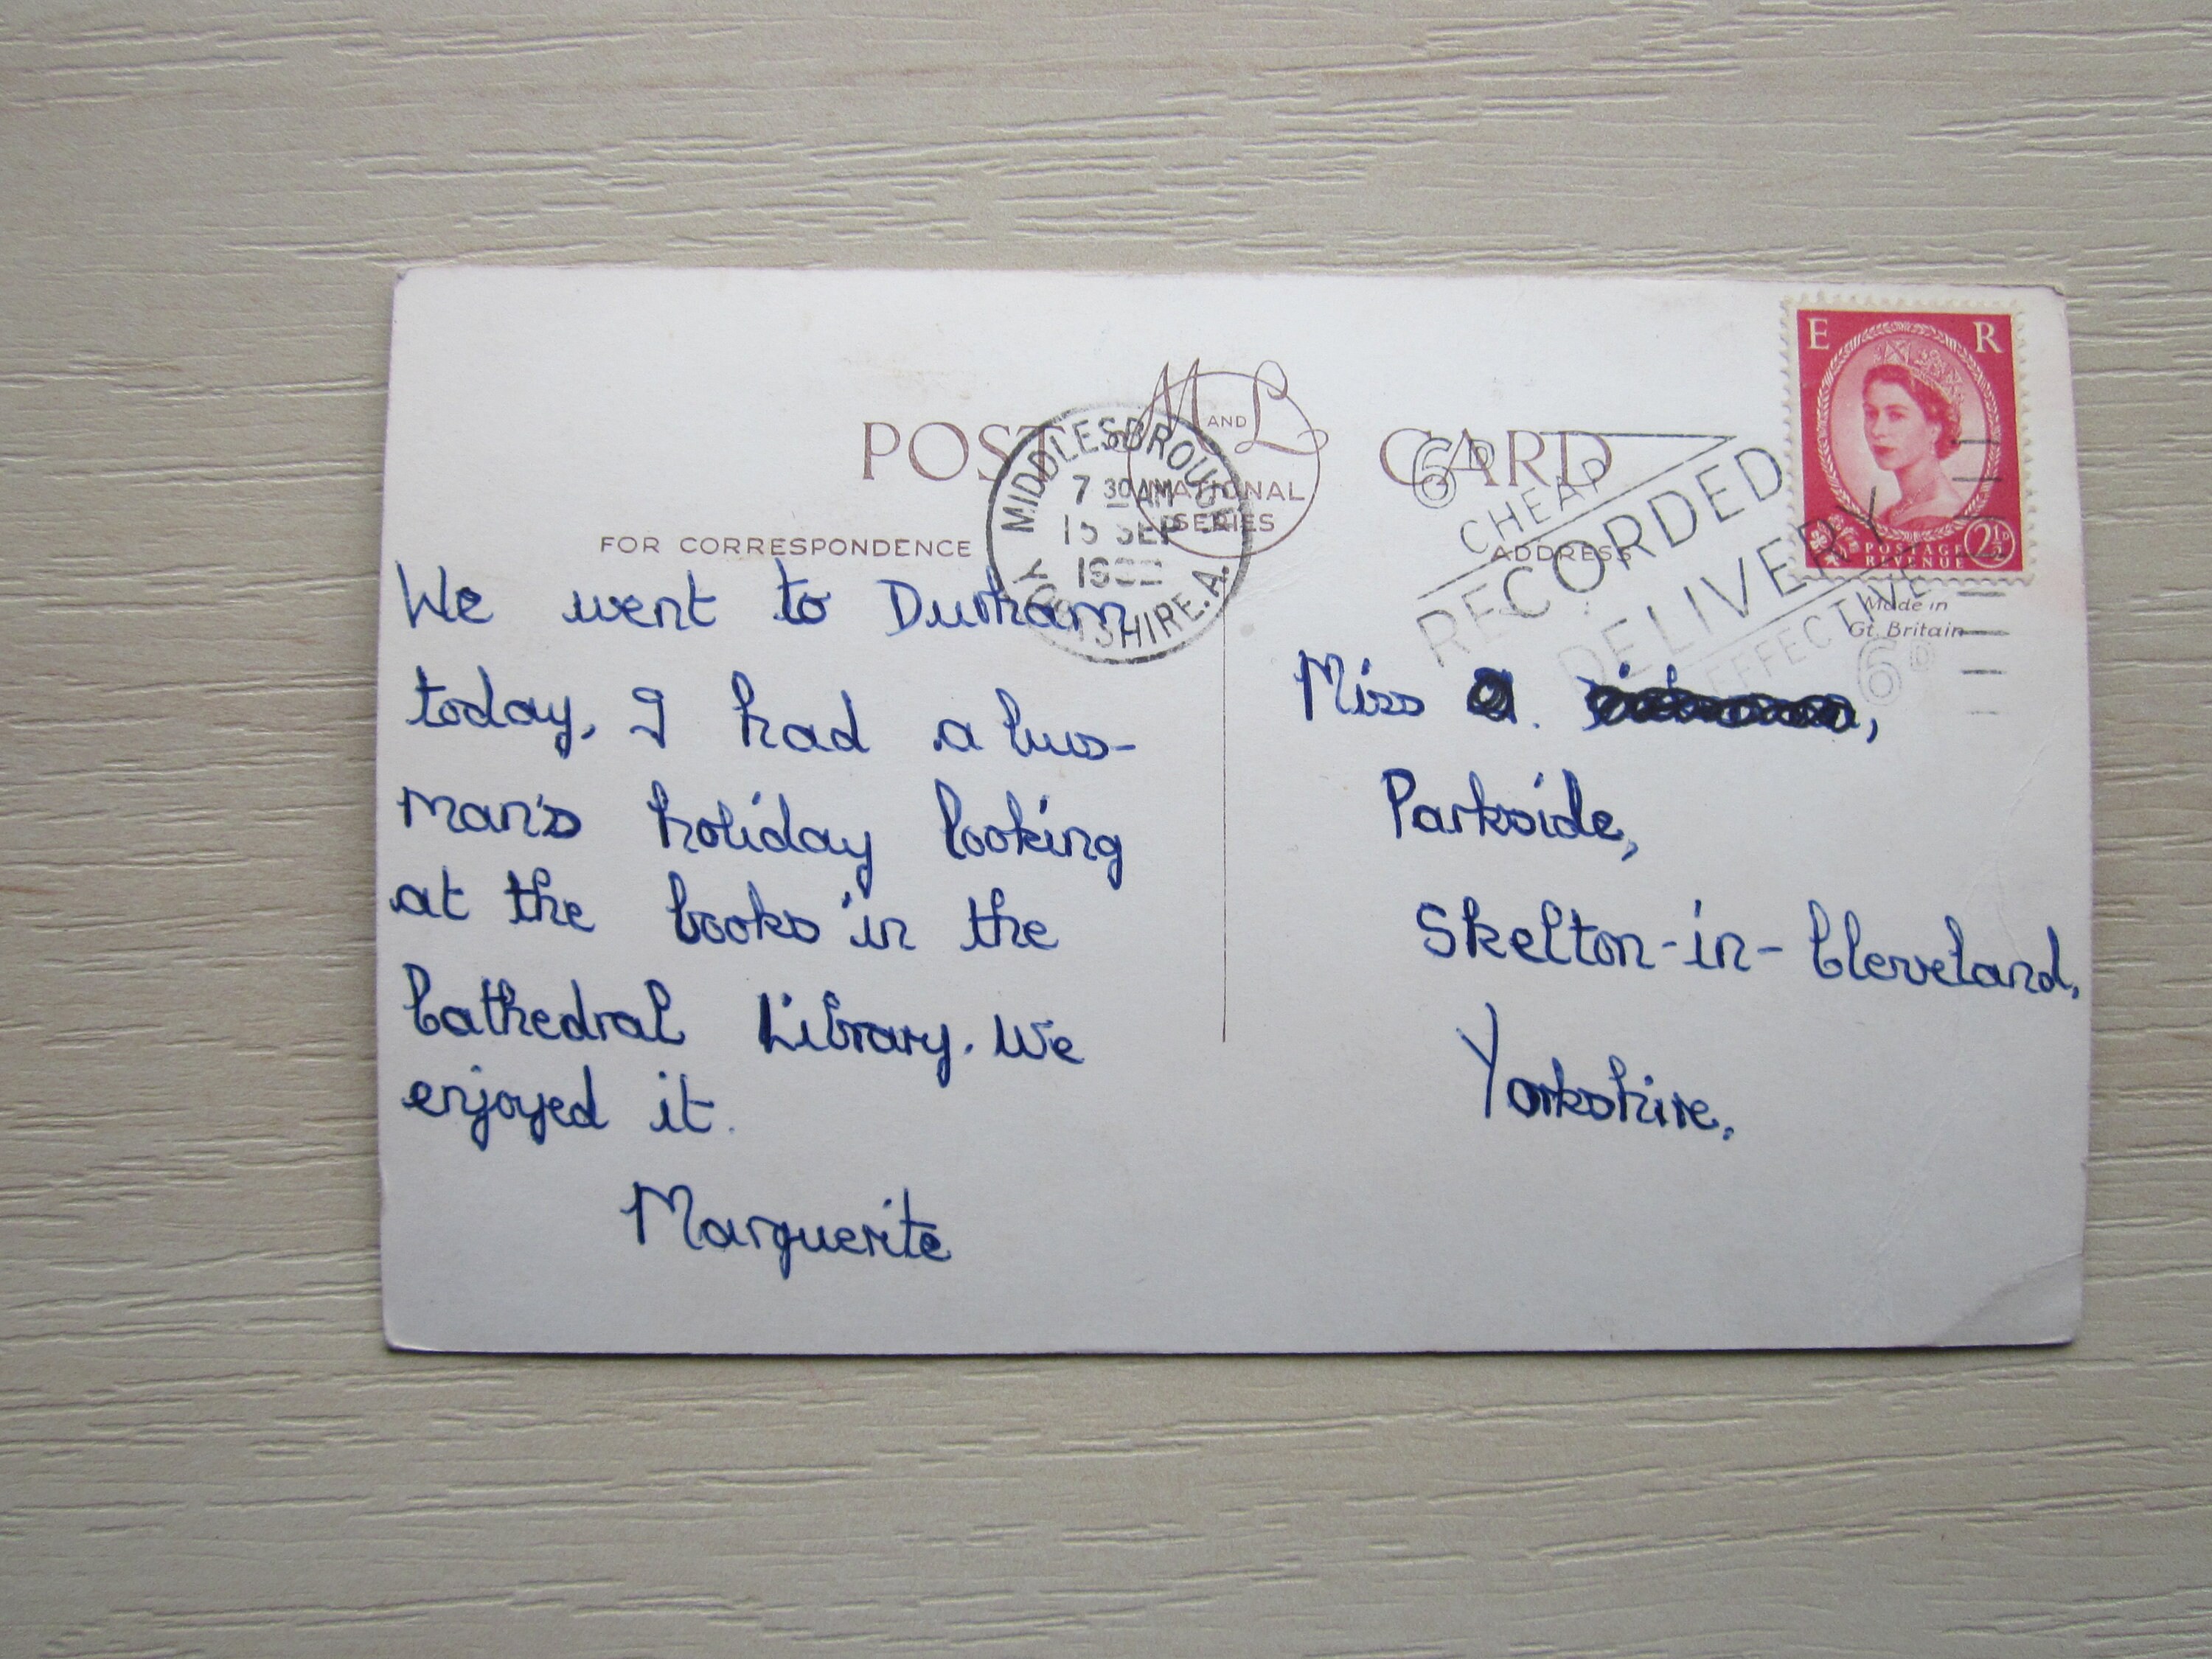 POST CARD
M AND L
NATIONAL
SERIES
MIDDLESBROUGH
7 30 AM
15 SEP
YORKSHIRE.A.
6D
CHEAP
RECORDED
DELIVERY
EFFECTIVE
6D
E R
POSTAGE
REVENUE
2½D
Made in
Gt. Britain
FOR CORRESPONDENCE
ADDRESS
We went to Durham
today, I had a bus-
man's holiday looking
at the books in the
Cathedral Library. We
enjoyed it.
Marguerite
Miss
Parkside,
Skelton-in-Cleveland,
Yorkshire.